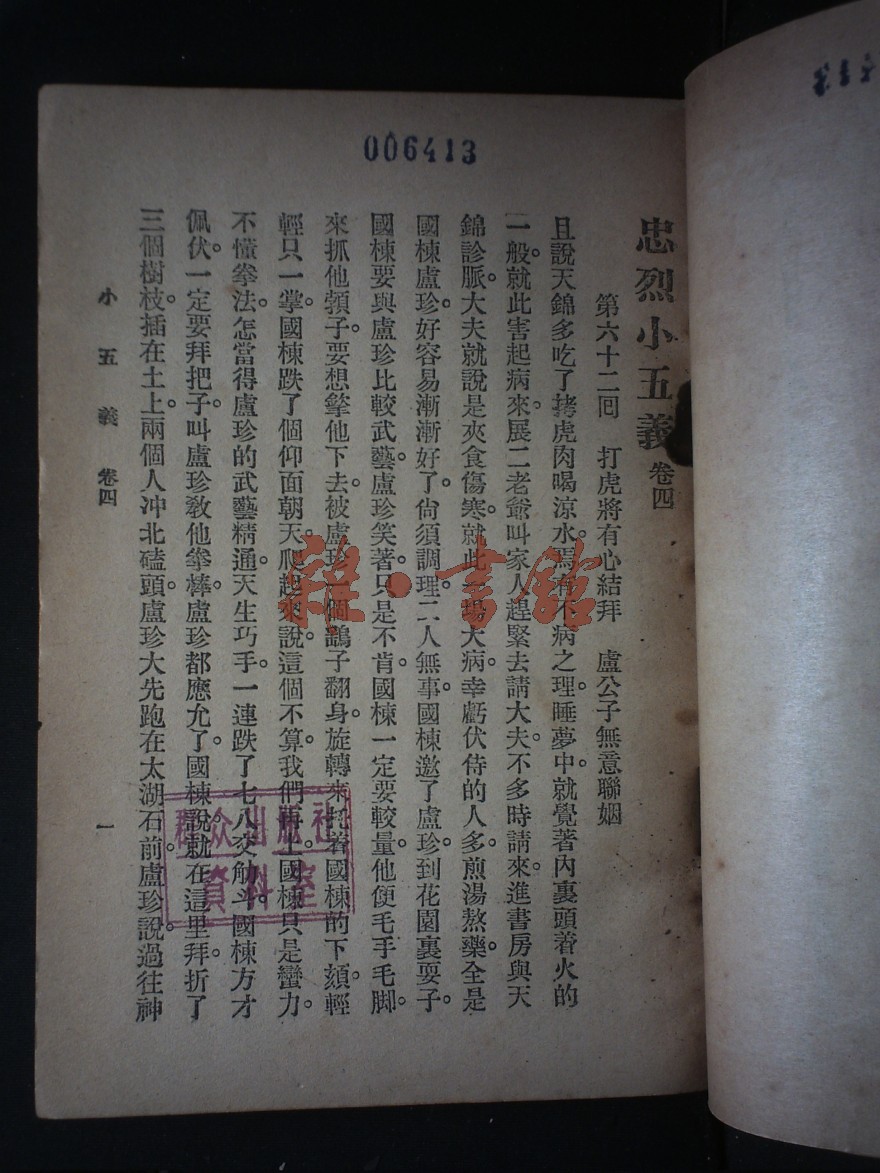 006413
忠烈小五義 卷四
第六十二回 打虎將有心結拜 盧公子無意聯姻
且說天錦多吃了拷虎肉喝涼水。焉有不病之理。睡夢中。就覺著內裏頭着火的
一般。就此害起病來。展二老爺叫家人趕緊去請大夫。不多時請來。進書房與天
錦診脈。大夫就說是夾食傷寒。就此一場大病。幸虧伏侍的人多。煎湯熬藥。全是
國棟盧珍。好容易漸漸好了。尙須調理。二人無事。國棟邀了盧珍。到花園裏耍子。
國棟要與盧珍比較武藝。盧珍笑著。只是不肯。國棟一定要較量。他便毛手毛脚。
來抓他頦子。要想擎他下去。被盧珍一個鷂子翻身。旋轉來。托着國棟的下頦。輕
輕只一掌。國棟跌了個仰面朝天。爬起來說。這個不算。我們再上。國棟只是蠻力。
不懂拳法。怎當得盧珍的武藝精通。天生巧手。一連跌了七八交觔斗。國棟方才
佩伏。一定要拜把子。叫盧珍敎他拳棒。盧珍都應允了。國棟說。就在這里拜。折了
三個樹枝。插在土上。兩個人冲北磕頭。盧珍大先跑在太湖石前。盧珍說。過往神
小五義 卷四 一
雜·書館
群众出版社
資料室